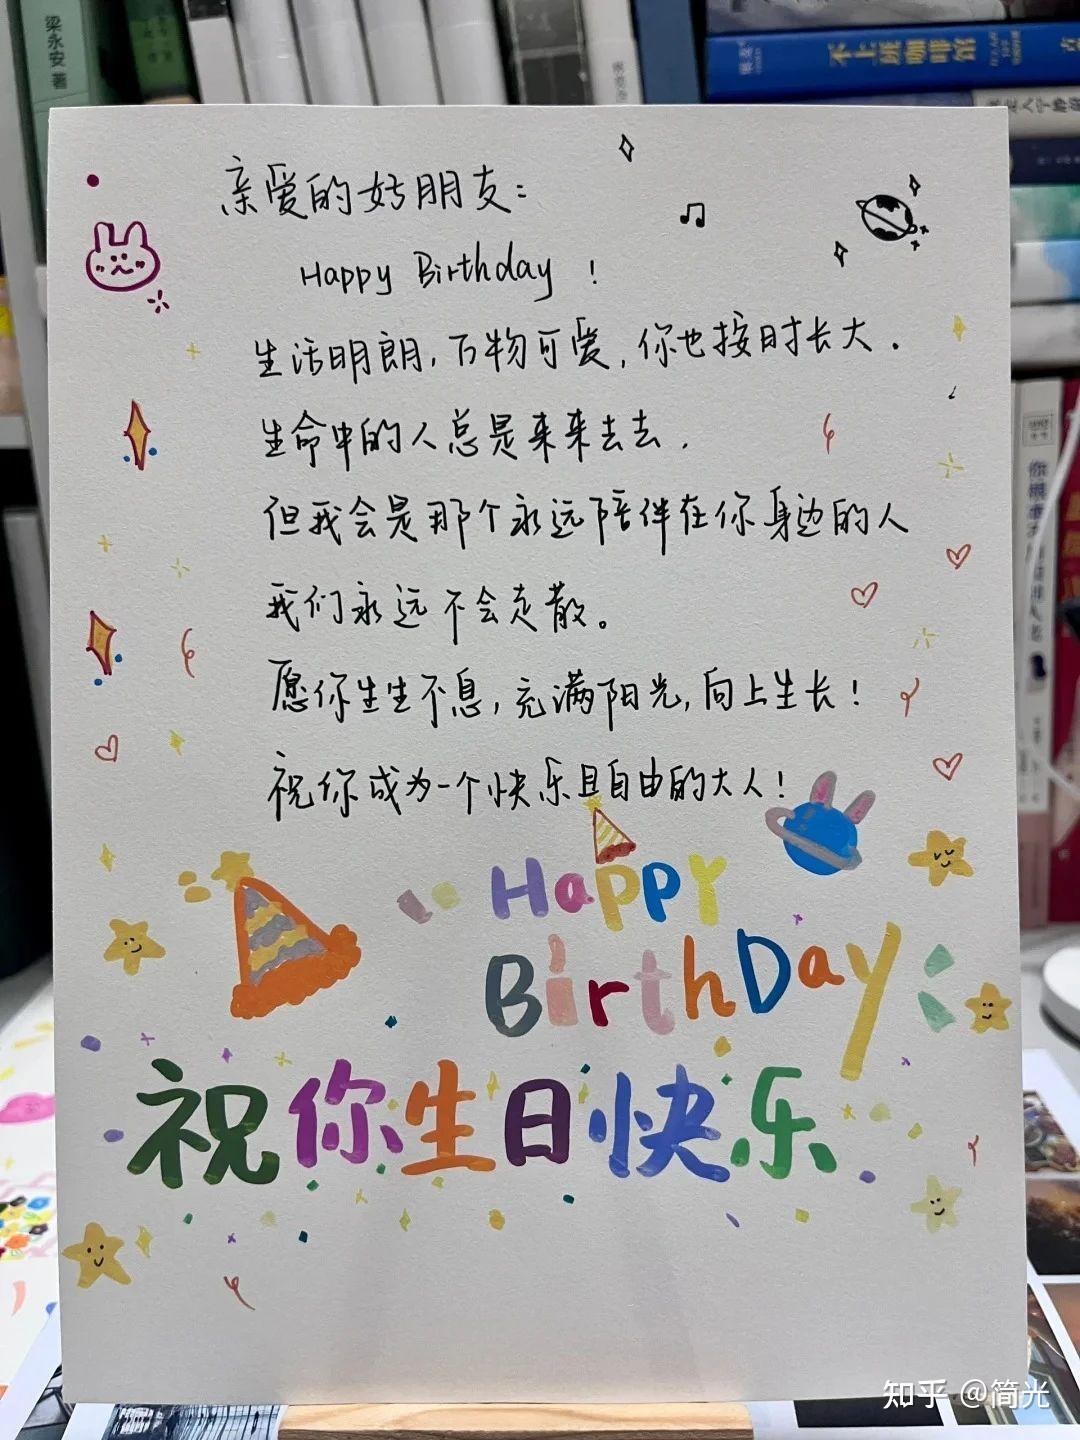 梁永安 著
不上班咖啡馆
亲爱的好朋友：
Happy Birthday !
生活明朗，万物可爱，你也按时长大.
生命中的人总是来来去去.
但我会是那个永远陪伴在你身边的人
我们永远不会走散。
愿你生生不息，充满阳光，向上生长!
祝你成为一个快乐且自由的大人!
Happy
BirthDay
祝你生日快乐
知乎 @简光